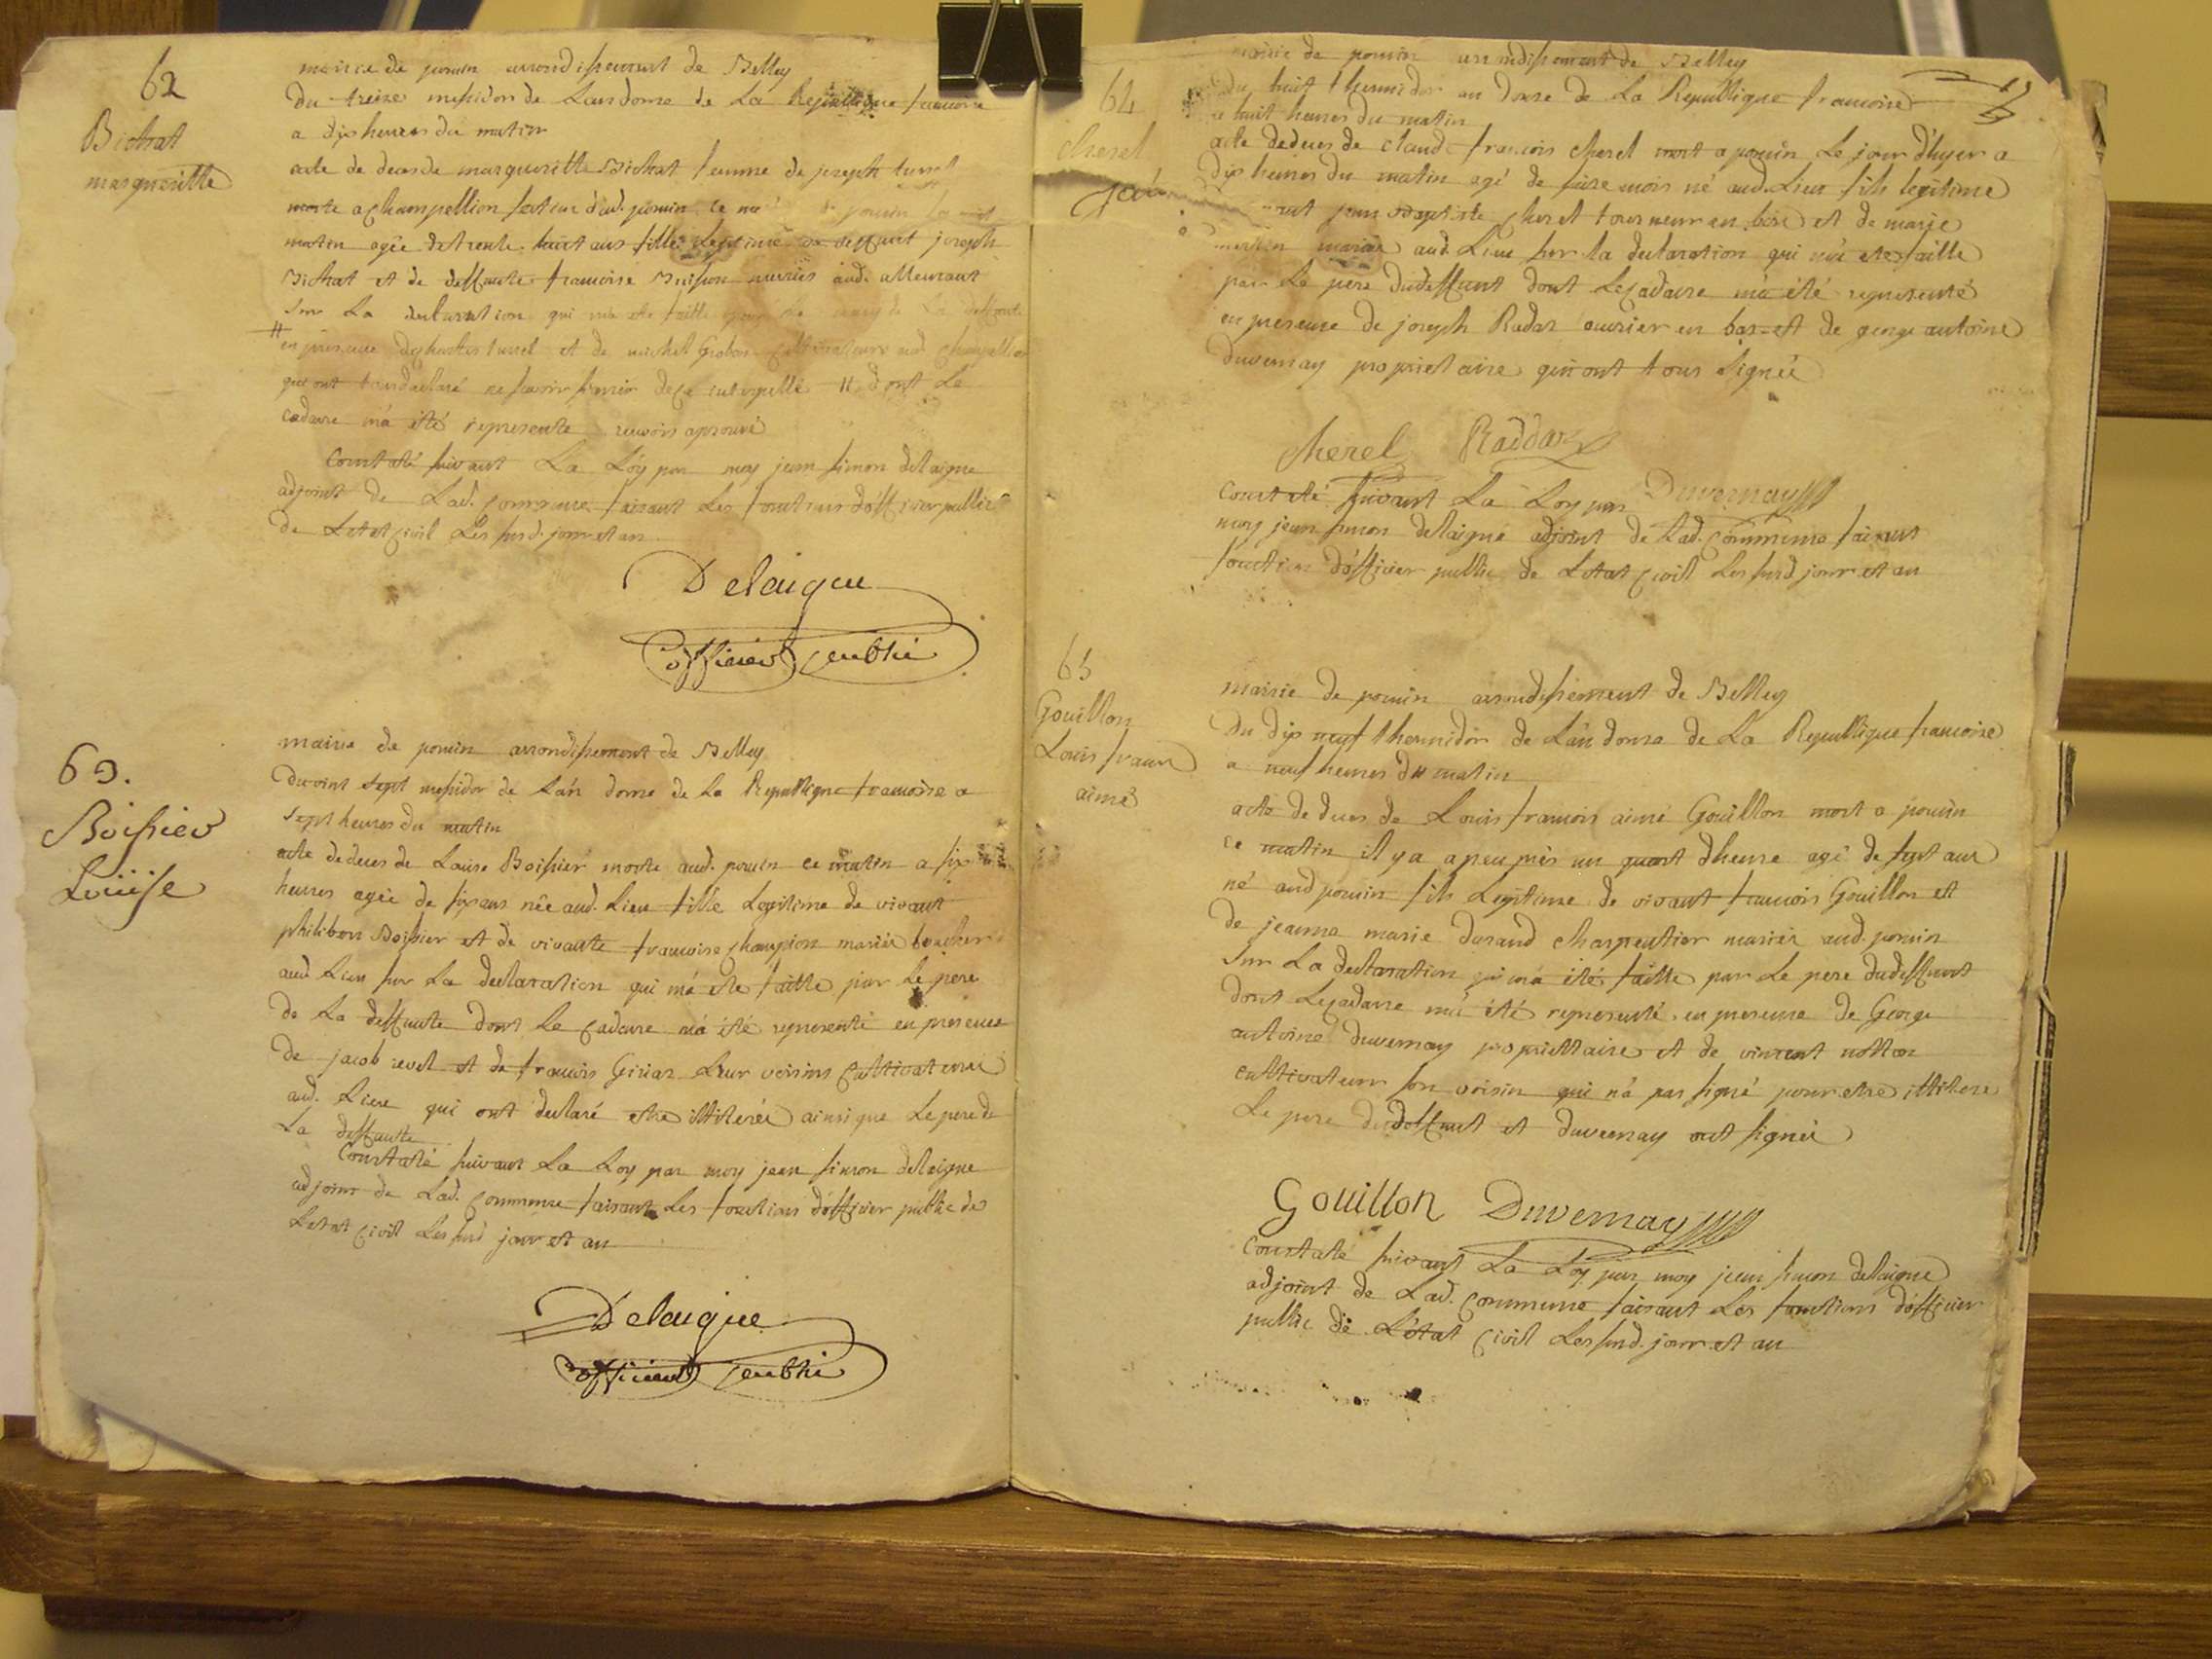 62
Bichat
margueritte
mairie de poncin arrondissement de Belley
du treize messidor de Lan douze de La Republique francoise
a dix heures du matin
acte de deces de marguerite Bichat femme de joseph
morte a champellion ce
matin agée de trente huit ans fille Legitime de deffunt joseph
Bichat et de deffunte francoise Buisson mariés aud.
Sur La declaration qui m'a été faitte par Le de La deffunte
en presence de charles turrel et de michel Grobon cultivateurs aud champellion
qui ont declaré ne scavoir signer de ce interpellé # dont Le
cadavre m'a été representé renvois aprouvé
Constaté suivant La Loy par moy jean simon delaigue
adjoint de Lad. commune faisant Les fonctions d'officier public
de Létat civil Les susd. jour et an
Delaigue
officier public
63.
Boissier
Louise
mairie de poncin arrondissement de Belley
du vint sept messidor de L'an douze de La Republique francoise a
sept heures du matin
acte de deces de Louise Boissier morte aud. poncin ce matin a six
heures agée de six ans née aud. Lieu fille Legitime de vivant
philibert Boissier et de vivante francoise champion mariés
aud Lieu sur La declaration qui m'a été faitte par Le pere
de La deffunte dont Le cadavre m'a été representé en presence
de jacob revel et de francois Girier Leur voisins cultivateurs
aud. Lieu qui ont declaré etre illiterés ainsi que Le pere de
La deffunte
Constaté suivant La Loy par moy jean simon delaigue
adjoint de Lad. commune faisant Les fonctions d'officier public de
Létat civil Les susd jour et an
Delaigue
officier public
64
cherel
mairie de poncin arrondissement de Belley
du huit thermidor an douze de La Republique francoise
a huit heures du matin
acte de deces de claude francois cherel mort a poncin Le jour d'hyer a
dix heures du matin agé de seize mois né aud. Lieu fils legitime
jean Baptiste cherel tourneur en bois et de marie
mariés aud. Lieu sur la declaration qui m'a eté faitte
par Le pere du deffunt dont Le cadavre m'a été representé
en presence de joseph Radaz ouvrier en bas et de george antoine
duvernay proprietaire qui ont tous signés
cherel Raddaz
Duvernay
Constaté suivant La Loy par
moy jean simon delaigue adjoint de Lad. commune faisant
fonction d'officier public de Létat civil Les susd jour et an
65
Gouillon
Louis francois
aimé
mairie de poncin arrondissement de Belley
du dix neuf thermidor de L'an douze de La Republique francoise
a neuf heures du matin
acte de deces de Louis francois aimé Gouillon mort a poncin
ce matin il y a a peu près un quart d'heure agé de sept ans
né aud poncin fils Legitime de vivant francois Gouillon et
de jeanne marie durand charpentier mariés aud. poncin
sur La declaration qui m'a été faitte par Le pere du deffunt
dont Le cadavre m'a été representé en presence de George
antoine duvernay propriettaire et de vincent
cultivateur son voisin qui n'a pas signé pour etre illitere
Le pere du deffunt et duvernay ont signés
Gouillon Duvernay
Constaté suivant La Loy par moy jean simon delaigue
adjoint de Lad. commune faisant Les fonctions d'officier
public de L'état civil Les susd. jour et an